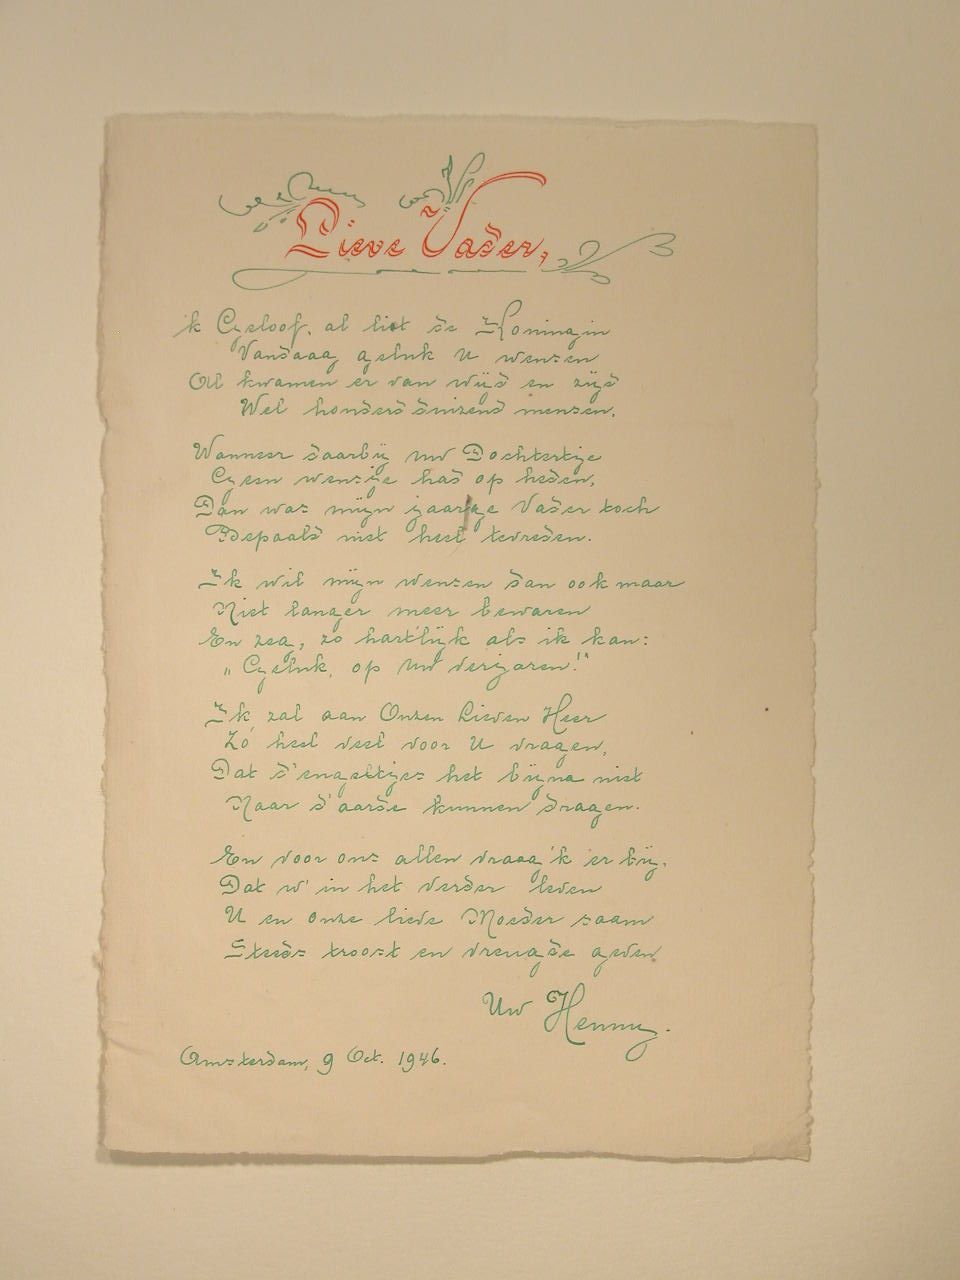 Lieve Vader,
ik Geloof, al liet de Koningin
Vandaag geluk U wensen
Al kwamen er van wijd en zijd
Wel honderd duizend mensen,
Wanneer daarbij uw Dochtertje
Geen wensje had op heden,
Dan was mijn jaarige Vader toch
Bepaald niet heel tevreden.
Ik wil mijn wensen dan ook maar
Niet langer meer bewaren
En zeg, zo hart'lijk als ik kan:
„Geluk, op Uw verjaren!"
Ik zal aan Onzen Lieven Heer
Zó heel veel voor U vragen,
Dat d'engeltjes het bijna niet
Naar d'aarde kunnen dragen.
En voor ons allen vraag 'k er bij,
Dat w' in het verder leven
U en onze lieve Moeder saam
Steeds troost en vreugde geven
Uw Henny.
Amsterdam, 9 Oct. 1946.